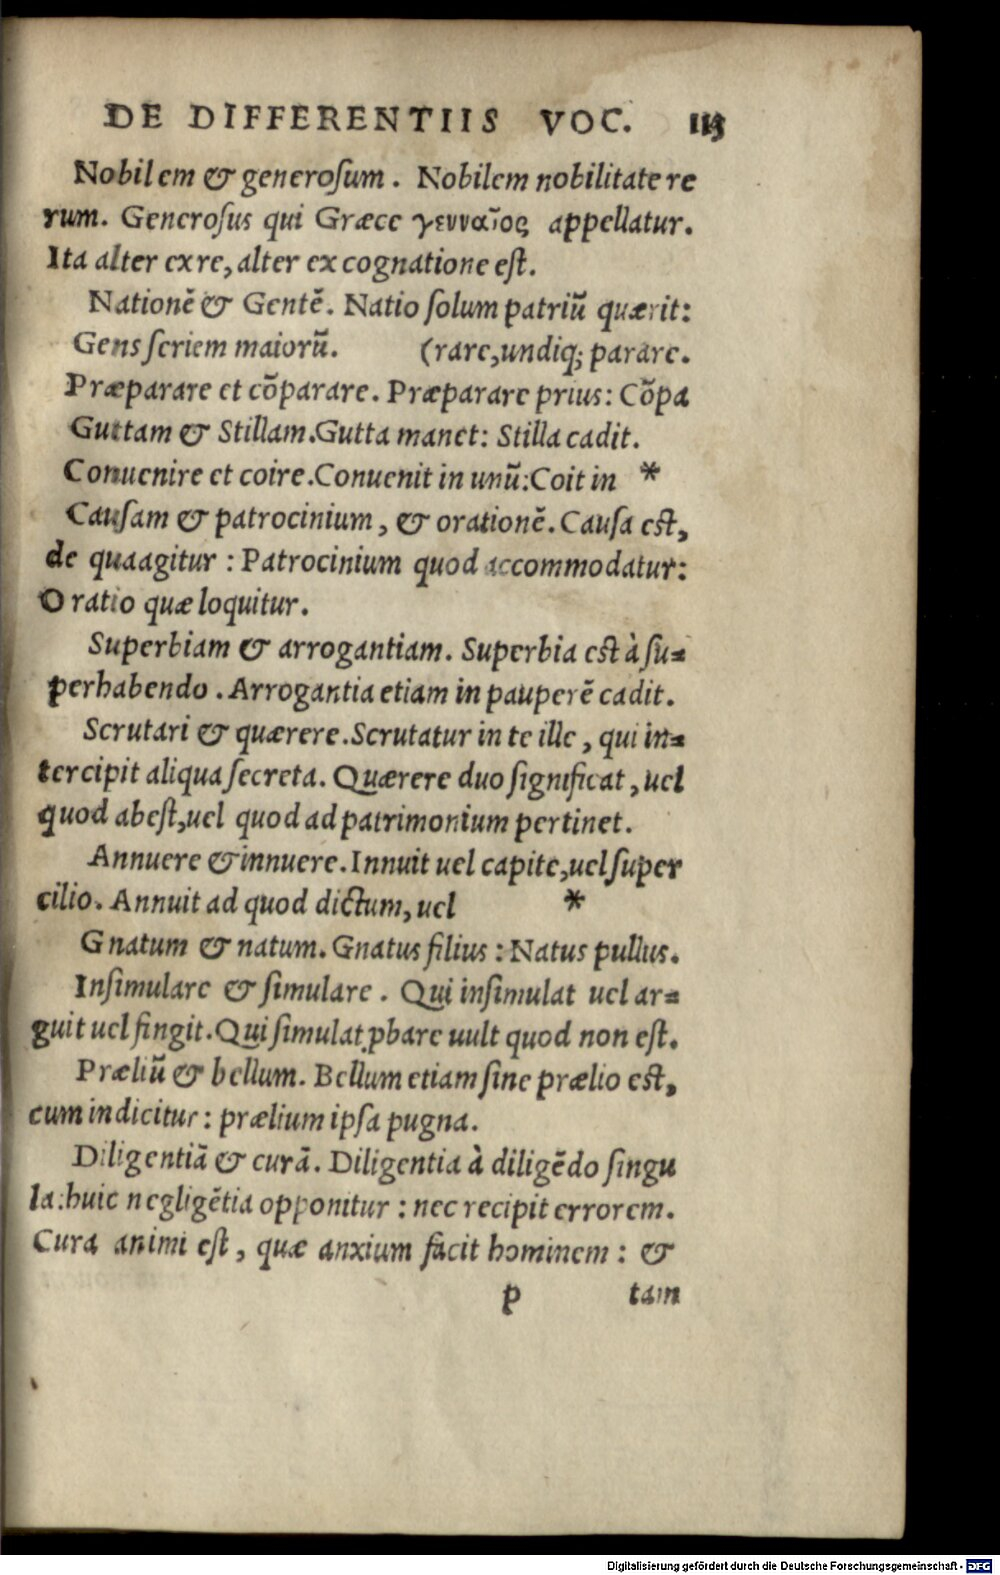 DE DIFFERENTIIS VOC. 113
Nobilem & generoſum. Nobilem nobilitate re
rum. Generoſus qui Græce γενναῖος appellatur.
Ita alter ex re, alter ex cognatione eſt.
Nationẽ & Gentẽ. Natio ſolum patriũ quærit:
Gens ſeriem maiorũ. (rare, undiq; parare.
Præparare et cõparare. Præparare prius: Cõpa
Guttam & Stillam. Gutta manet: Stilla cadit.
Conuenire et coire. Conuenit in unũ: Coit in *
Cauſam & patrocinium, & orationẽ. Cauſa eſt,
de qua agitur: Patrocinium quod accommodatur:
Oratio quæ loquitur.
Superbiam & arrogantiam. Superbia eſt à ſu=
perhabendo. Arrogantia etiam in pauperẽ cadit.
Scrutari & quærere. Scrutatur in te ille, qui in=
tercipit aliqua ſecreta. Quærere duo ſignificat, uel
quod abeſt, uel quod ad patrimonium pertinet.
Annuere & innuere. Innuit uel capite, uel ſuper
cilio. Annuit ad quod dictum, uel *
Gnatum & natum. Gnatus filius: Natus pullus.
Inſimulare & ſimulare. Qui inſimulat uel ar=
guit uel fingit. Qui ſimulat ꝓbare uult quod non eſt.
Præliũ & bellum. Bellum etiam ſine prælio eſt,
cum indicitur: prælium ipſa pugna.
Diligentiã & curã. Diligentia à diligẽdo ſingu
la: huic negligẽtia opponitur: nec recipit errorem.
Cura animi eſt, quæ anxium facit hominem: &
p tam
Digitalisierung gefördert durch die Deutsche Forschungsgemeinschaft - DFG